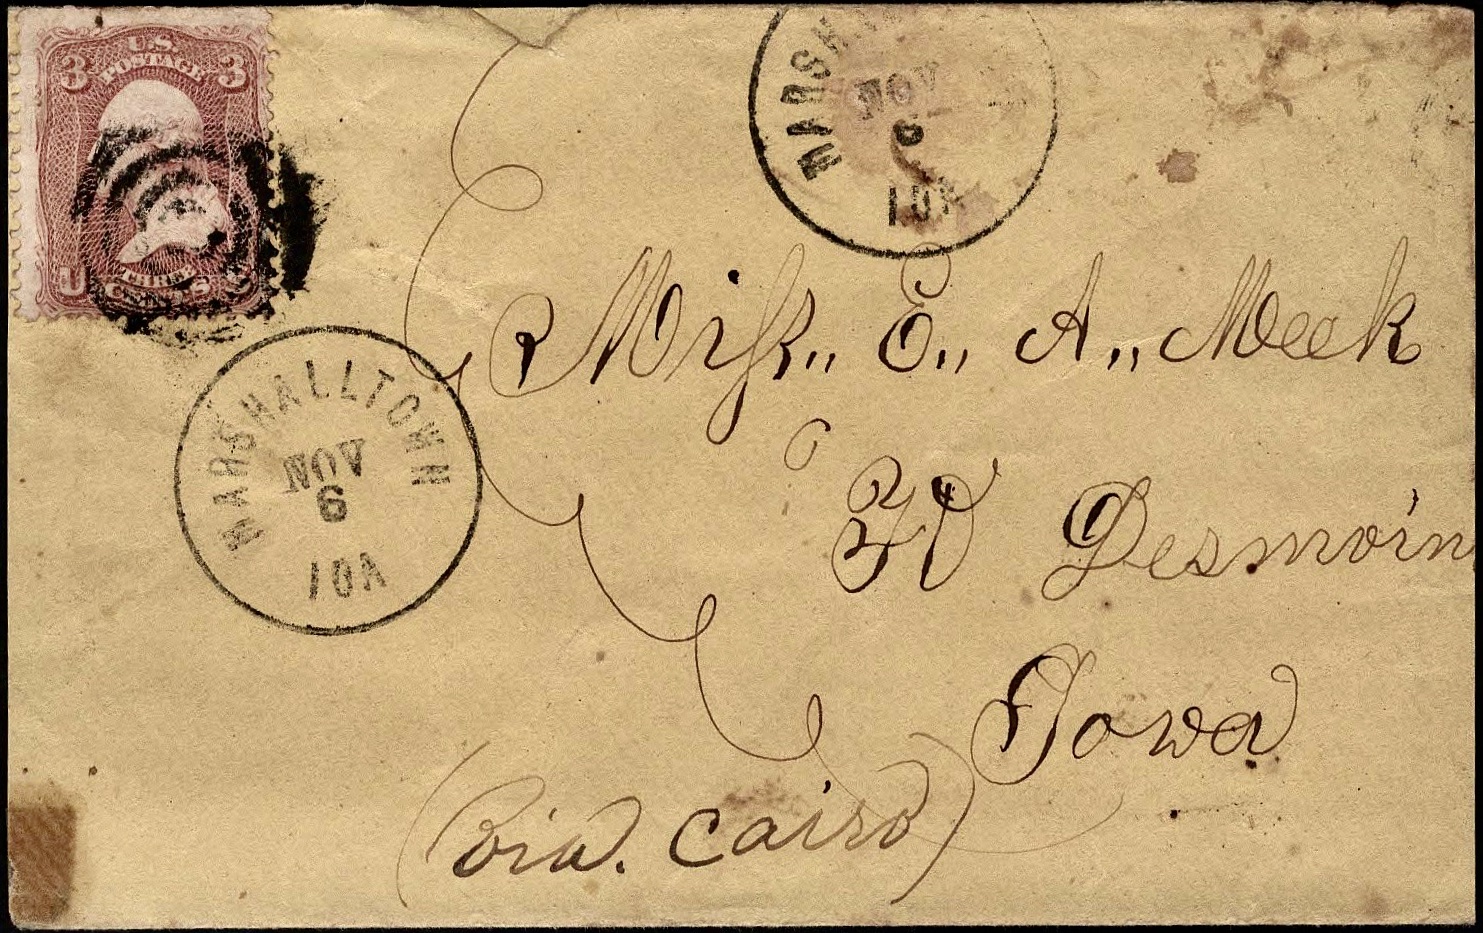 U.S.
POSTAGE
3 3
U
THREE
CENTS
MARSH
NOV
6
IOA
MARSHALLTOWN
NOV
6
IOA
Miss,, E,, A,, Meek
Desmoin
Iowa
(via. Cairo)